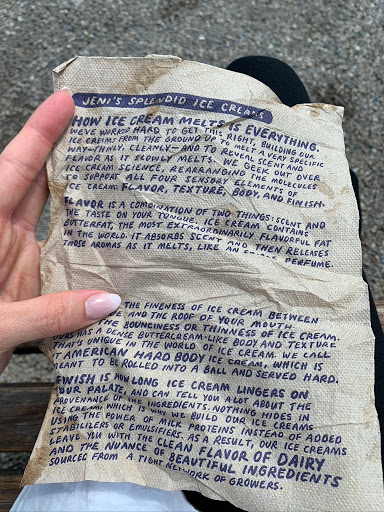 JENI'S SPLENDID ICE CREAMS
HOW ICE CREAM MELTS IS EVERYTHING.
WE'VE WORKED HARD TO GET THIS RIGHT, BUILDING OUR
ICE CREAMS FROM THE GROUND UP TO MELT A VERY SPECIFIC
WAY—THINLY, CLEANLY—AND TO REVEAL SCENT AND
FLAVOR AS IT SLOWLY MELTS. WE GEEK OUT OVER
ICE CREAM SCIENCE, REARRANGING THE MOLECULES
TO SUPPORT ALL FOUR SENSORY ELEMENTS OF
ICE CREAM: FLAVOR, TEXTURE, BODY, AND FINISH.
FLAVOR IS A COMBINATION OF TWO THINGS: SCENT AND
THE TASTE ON YOUR TONGUE. ICE CREAM CONTAINS
BUTTERFAT, THE MOST EXTRAORDINARILY FLAVORFUL FAT
IN THE WORLD. IT ABSORBS SCENT AND THEN RELEASES
THOSE AROMAS AS IT MELTS, LIKE AN EDIBLE PERFUME.
THE FINENESS OF ICE CREAM BETWEEN
AND THE ROOF OF YOUR MOUTH.
THE BOUNCINESS OR THINNESS OF ICE CREAM.
OURS HAS A DENSE BUTTERCREAM-LIKE BODY AND TEXTURE
THAT'S UNIQUE IN THE WORLD OF ICE CREAM. WE CALL
IT AMERICAN HARD BODY ICE CREAM, WHICH IS
MEANT TO BE ROLLED INTO A BALL AND SERVED HARD.
FINISH IS HOW LONG ICE CREAM LINGERS ON
YOUR PALATE, AND CAN TELL YOU A LOT ABOUT THE
PROVENANCE OF THE INGREDIENTS. NOTHING HIDES IN
ICE CREAM, WHICH IS WHY WE BUILD OUR ICE CREAMS
USING THE POWER OF MILK PROTEINS INSTEAD OF ADDED
STABILIZERS OR EMULSIFIERS. AS A RESULT, OUR ICE CREAMS
LEAVE YOU WITH THE CLEAN FLAVOR OF DAIRY
AND THE NUANCE OF BEAUTIFUL INGREDIENTS
SOURCED FROM A TIGHT NETWORK OF GROWERS.